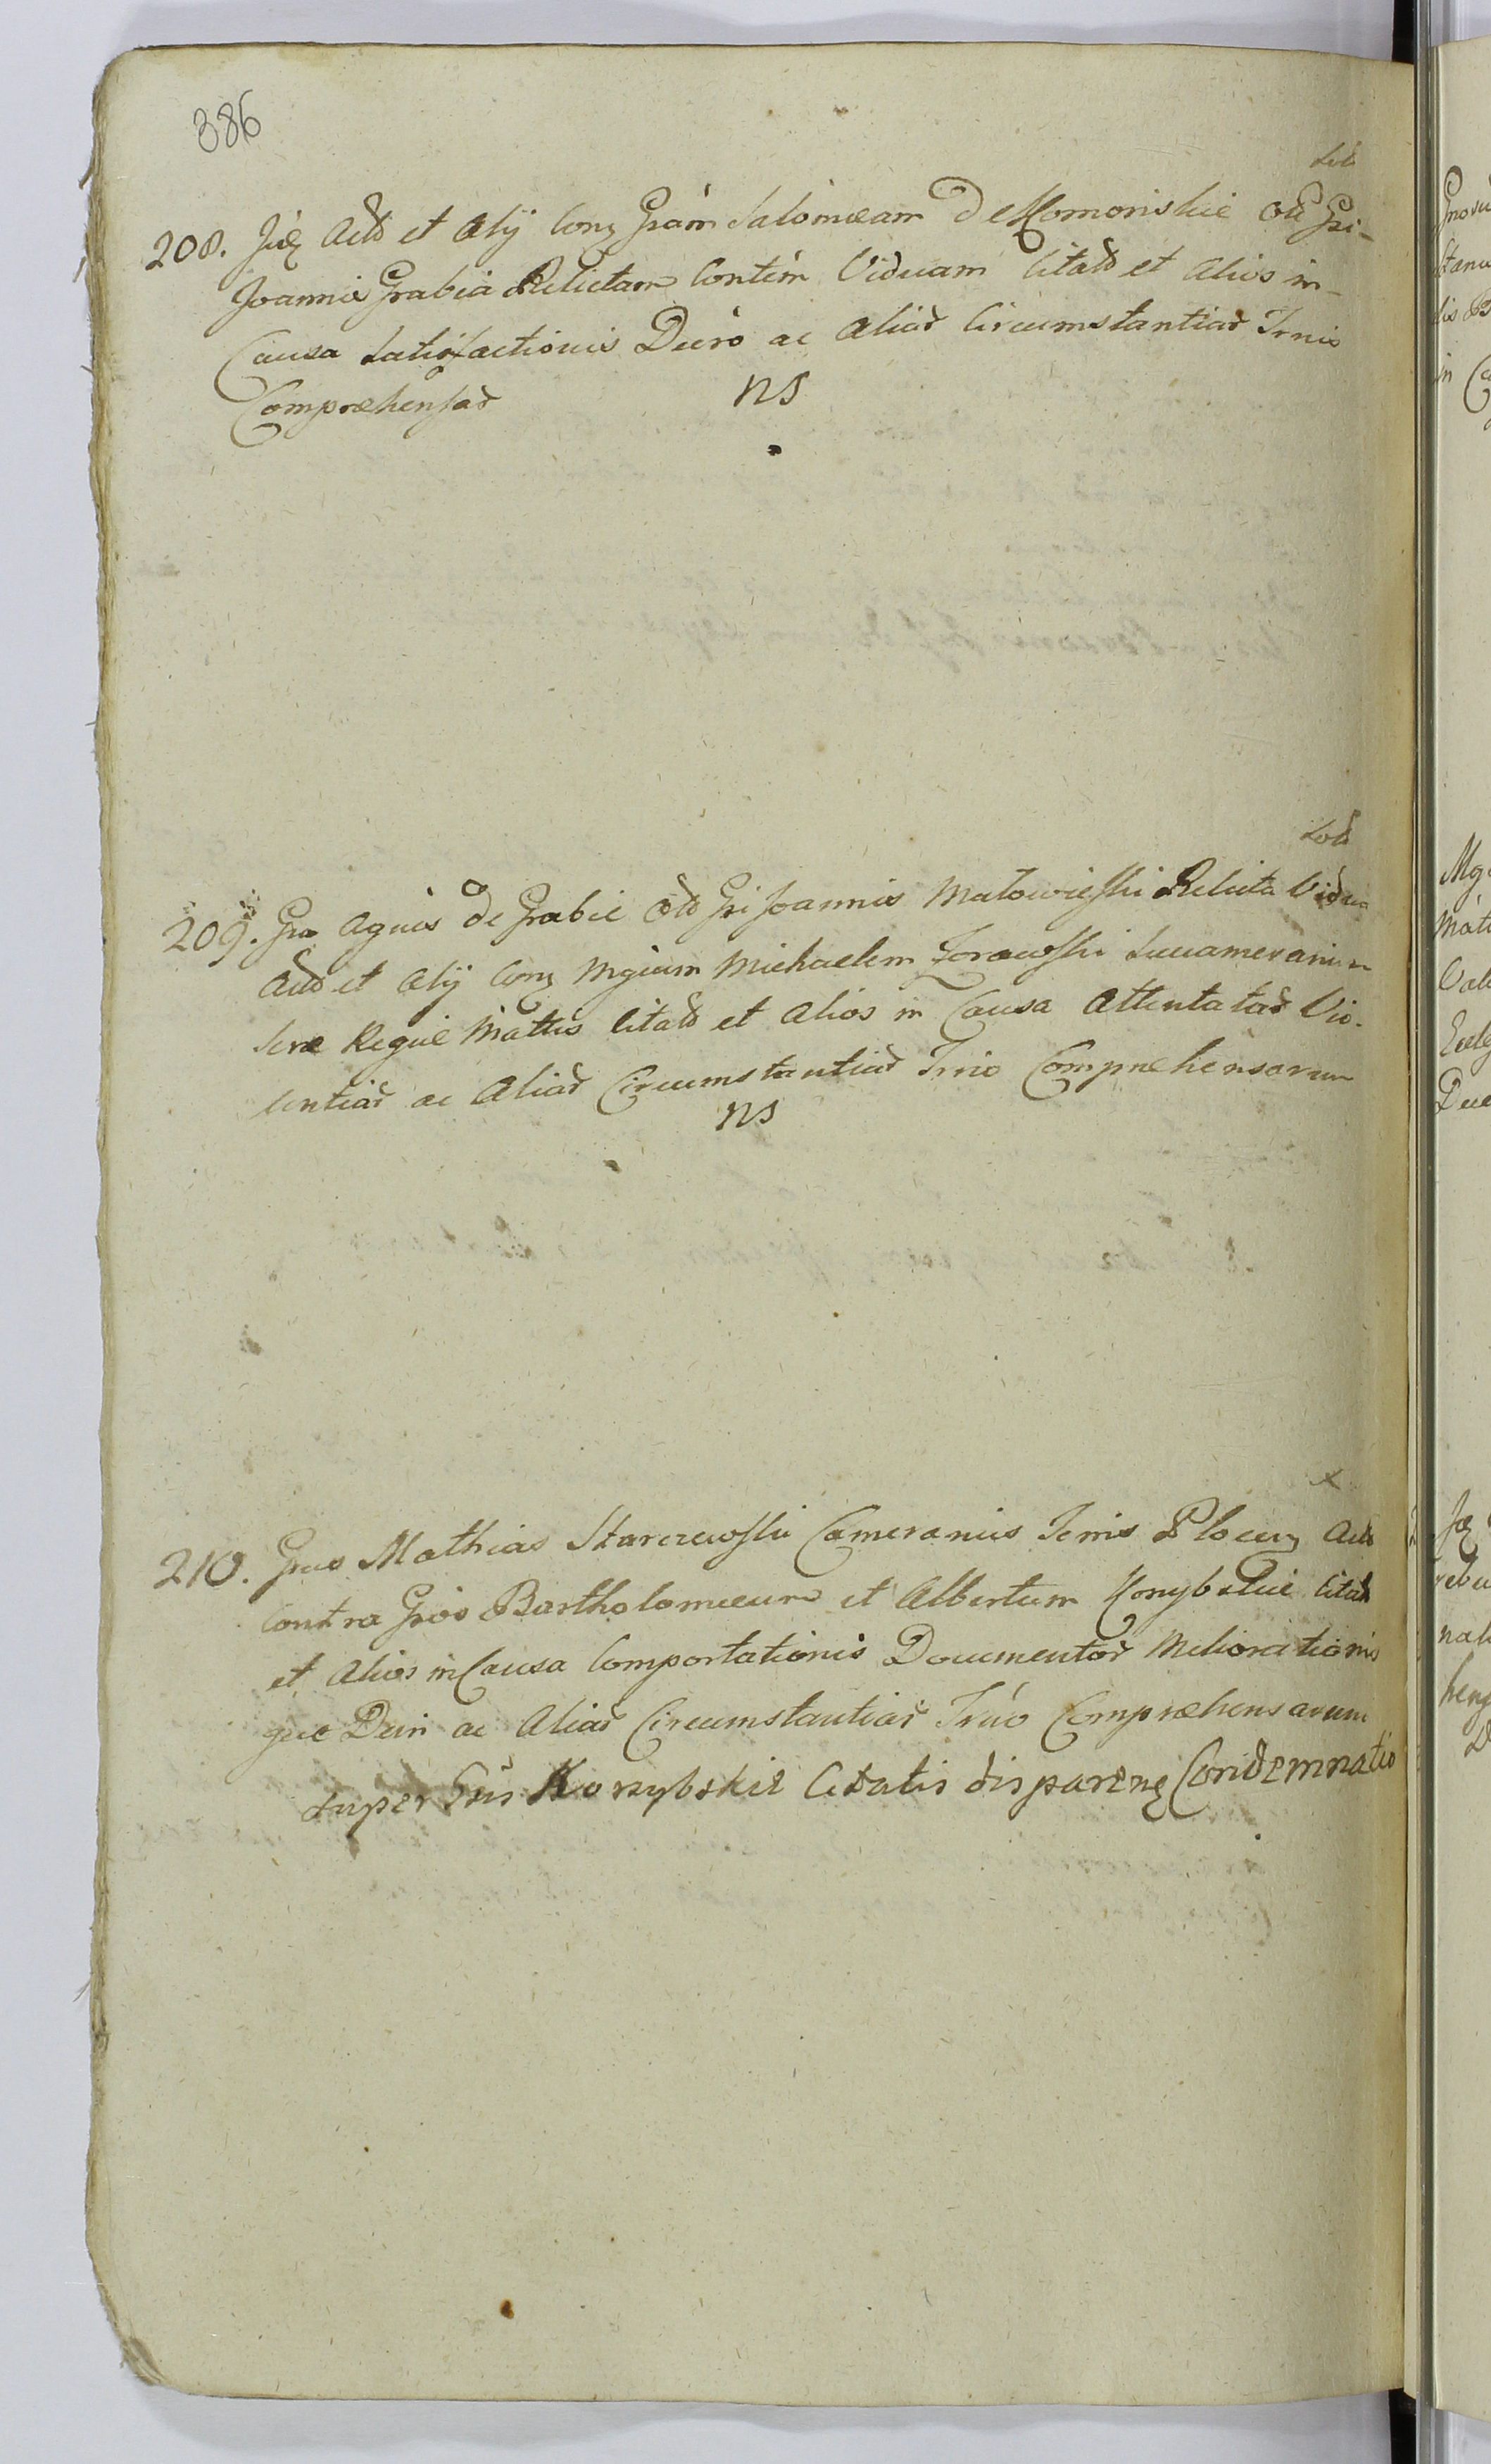 386
208. Jidę Actd et Alij Conz Gnám Salomæam De Komoriskie Otd Gni-
Joannis Grabia Relictam Contém Viduam Citatd et Alios in-
Causa Satisfactionis Decró ac Aliar̃ Circumstantiar̃ Trnio
Compræhensar̃
ns
209. Gna Agnes De Grabie Otd Gni Joannis Małowieski Relicta Vidua
Actd et Alij Conz Mgcum Michaelem Zorawski Succamerarium
Sacræ Regiæ Mattis Citatd et Alios in Causa Attentatar̃ Vio-
lentiar̃ ac Aliar̃ Circumstantiar̃ Trnio Compræhensarum
ns
210. Gnus Mathias Skarzewski Camerarius Terris Plocen Actd
contra Gnos Bartholomæum et Albertum Konybskie Citatd
et Alios in Causa Comportationis Documentor̃ Meliorationis
que Decri ac Aliar̃ Circumstantiar̃ Trnio Compræhensarum
Super Gnis Korzybskie Citatis disparenę Condemnatio